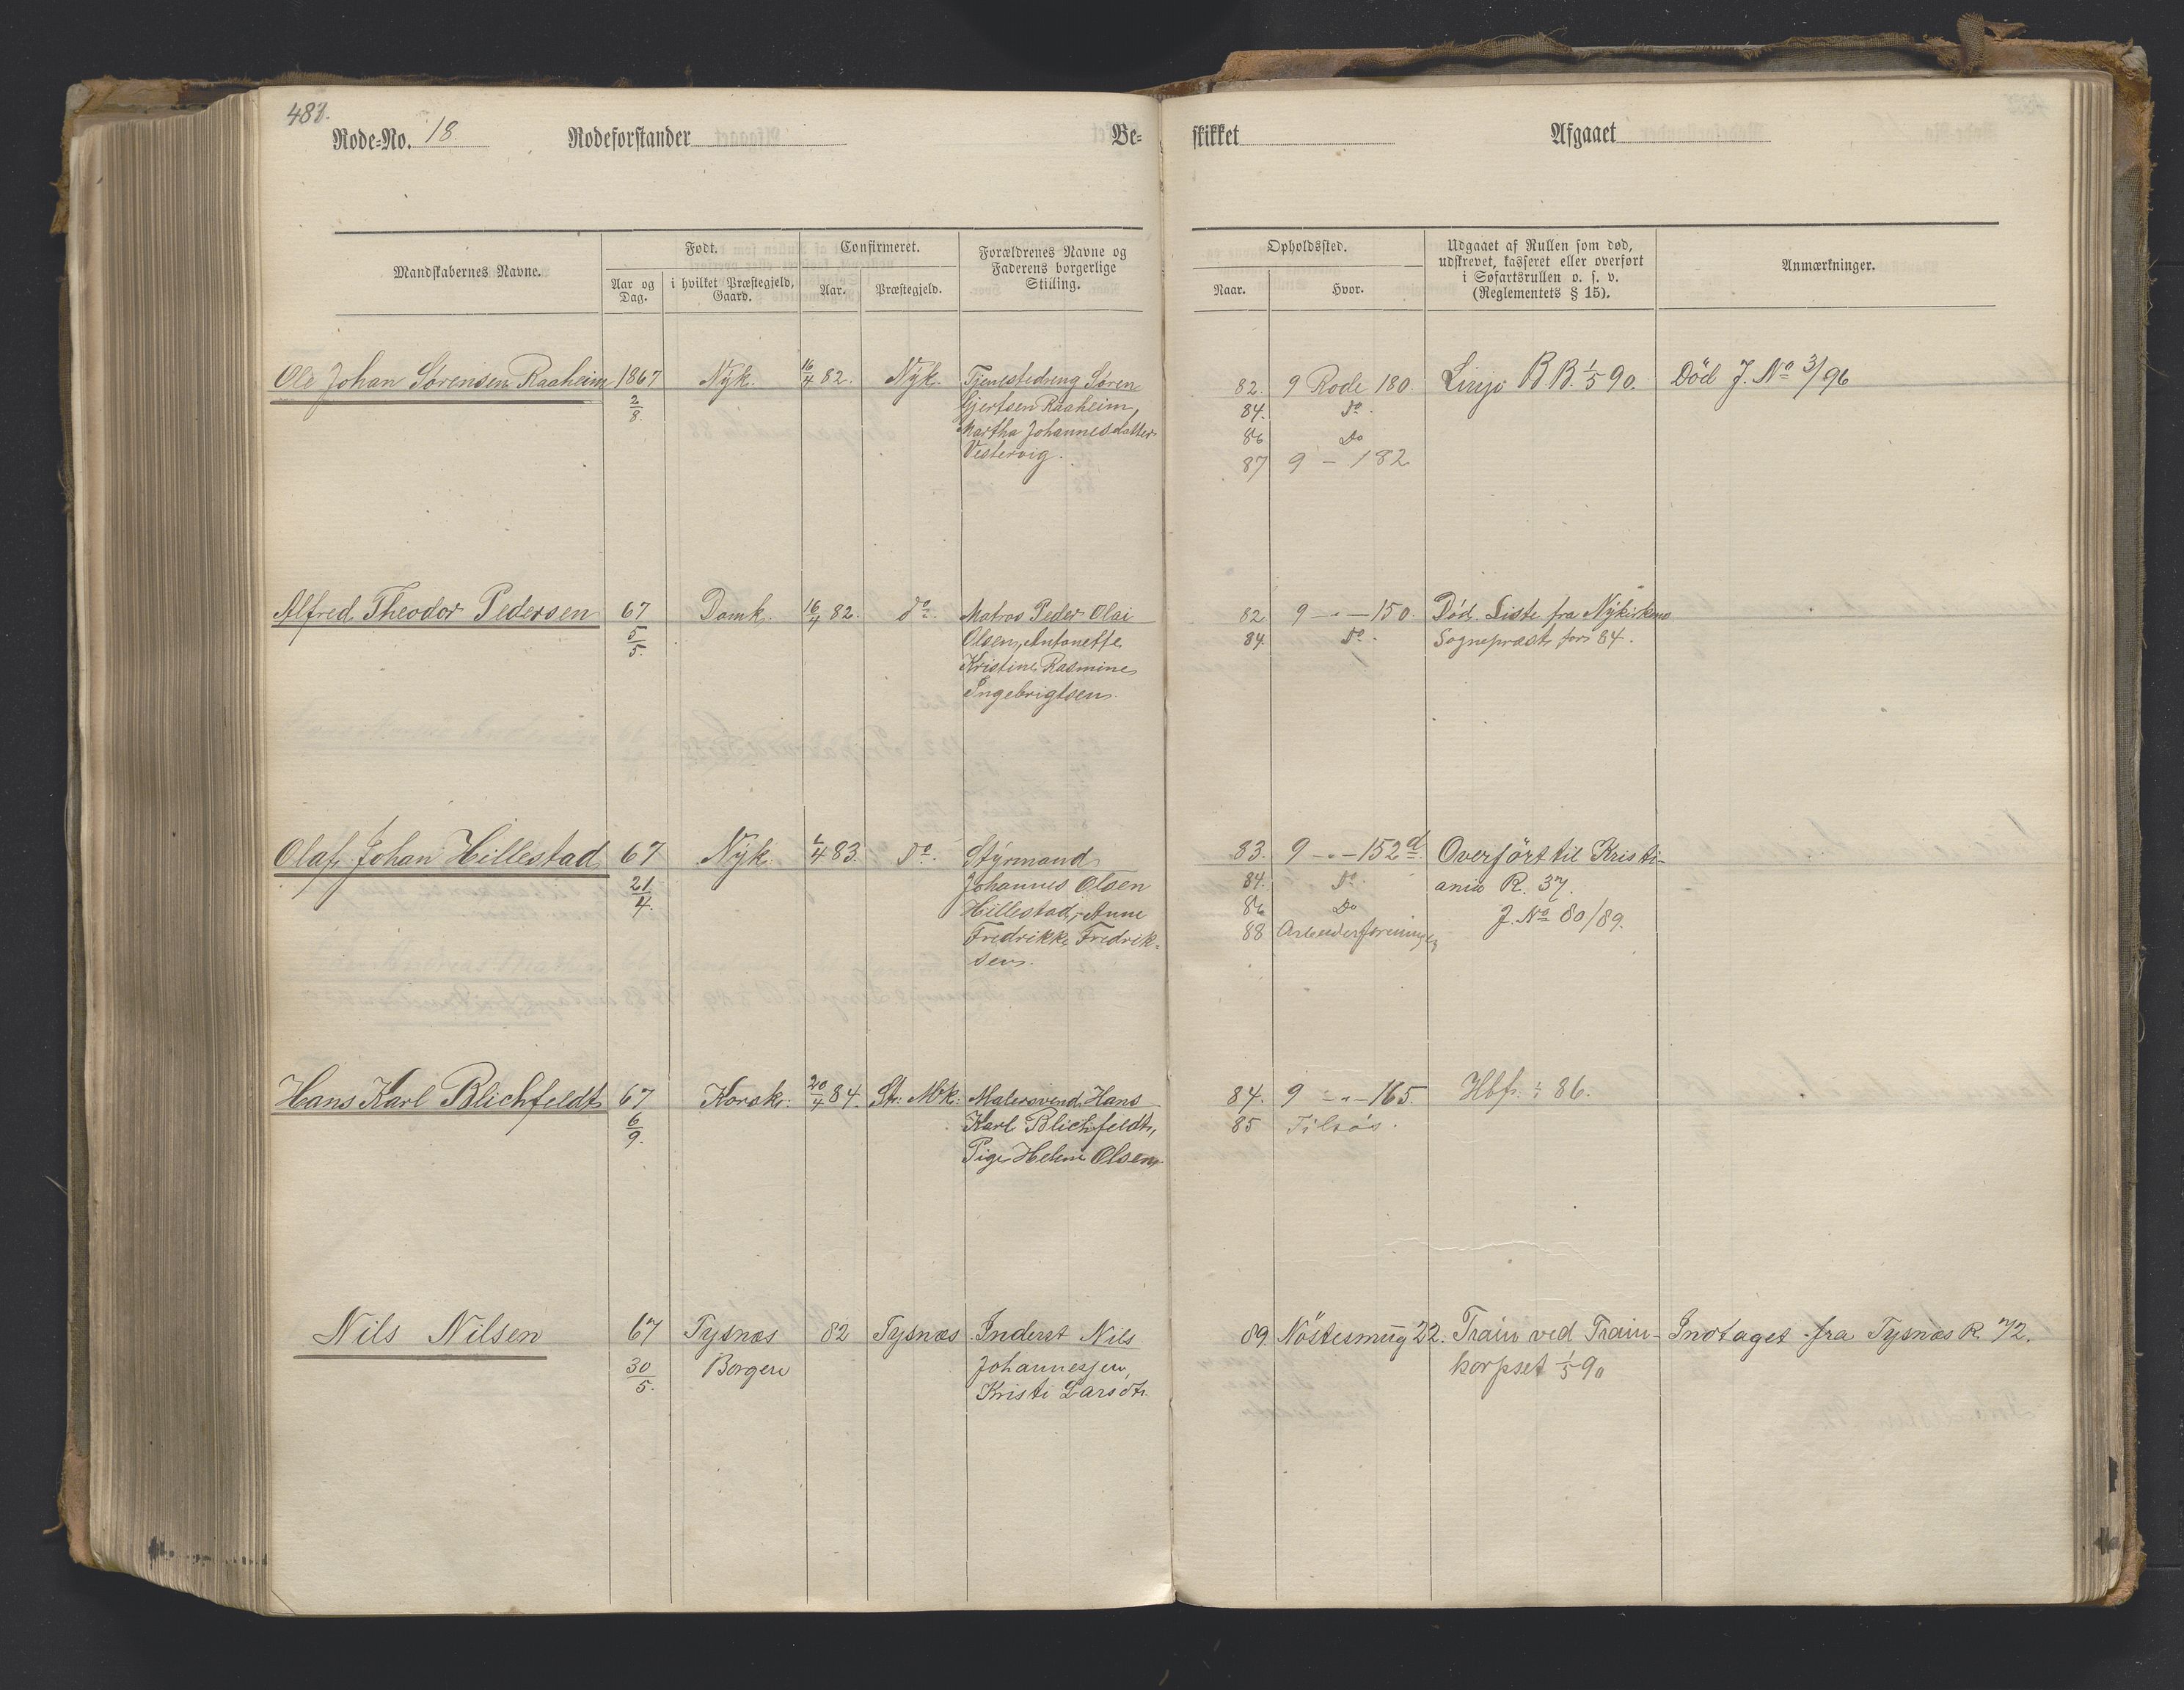 Rode-No. 18. Rodeforstander Be- skikket Afgaaet
Mandskabernes Navne. Født. Confirmeret. Forældrenes Navne og Faderens borgerlige Stilling. Opholdssted. Udgaaet af Rullen som død, udskrevet, kasseret eller overført i Søfartsrullen o. s. v. (Reglementets § 15). Anmærkninger.
Aar og Dag. i hvilket Præstegjeld, Gaard. Aar. Præstegjeld. Naar. Hvor.
Ole Johan Sørensen Raaheim 1867 Nyk. 16/4 82. Nyk. Tjenestedreng Søren 82. 9 Rode 180. Linje B B. 1/5 90. Död J. No 3/96
2/8. Gjertsen Raaheim, 84. do.
Martha Johannesdatter 86 Do
Vestervig. 87 9 - 182
Alfred Theodor Pedersen 67 Domk. 16/4 82. do. Matros Peder Olai 82 9 -"- 150. Död. Liste fra Nykirkens
5/5. Olsen, Antonette 84. do. Sognepræst for 84.
Kristine Rasmine
Ingebrigtsen.
Olaf Johan Hillestad 67 Nyk. /4 83. do. Styrmand 83. 9 -"- 152d. Overfört til Kristi-
21/4. Johannes Olsen 84. do. ania R. 37.
Hillestad, Anne 86 Do J. No 80/89.
Fredrikke Fredrik- 88 Arbeiderforeningen
sen.
Hans Karl Blichfeldt 67 Korsk. 20/4 84. St. Mk. Malersvend Hans 84. 9 -"- 165. Hbfr. 86.
6/9. Karl Blichfeldt, 85 Tilsös.
Pige Helene Olsen
Nils Nilsen 67 Tysnæs 82 Tysnæs Inderst Nils 89. Nöstesmug 22. Train ved Train- Indtaget fra Tysnæs R. 72.
30/5. Borgen Johannesjen, korpset 1/5 90
Kristi Larsdtr.